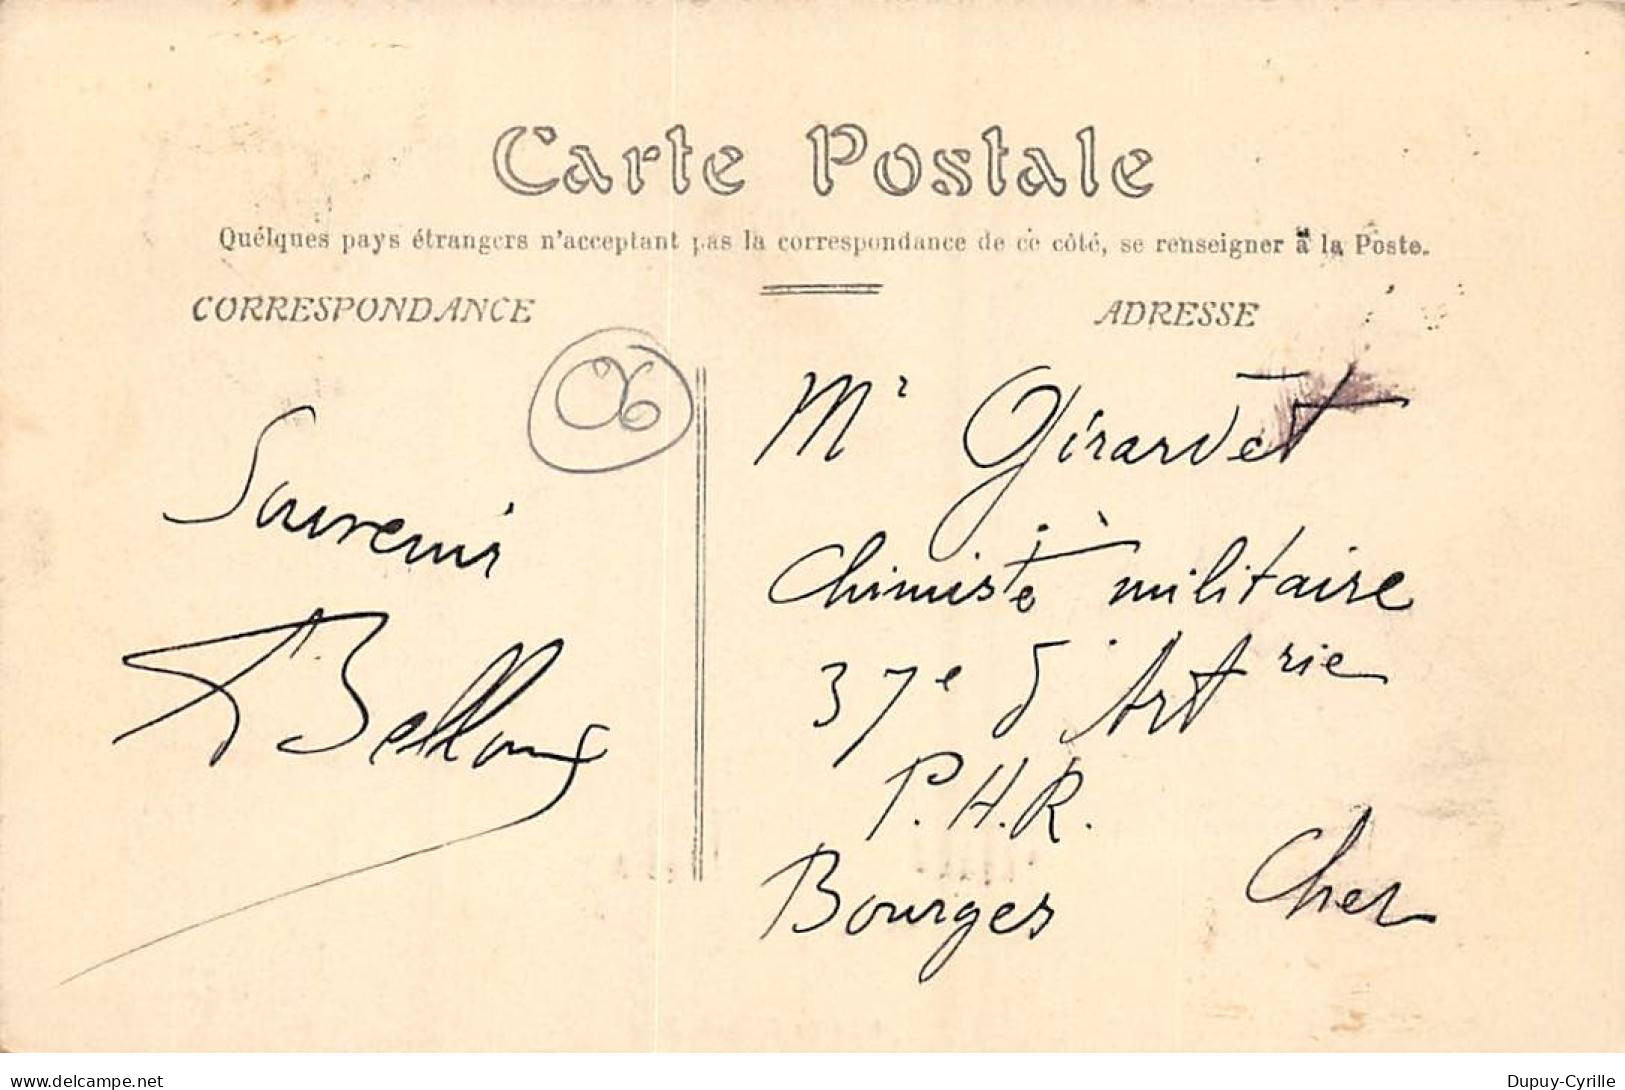 Carte Postale
Quelques pays étrangers n'acceptant pas la correspondance de ce côté, se renseigner à la Poste.
CORRESPONDANCE
ADRESSE
06
Souvenir
Mr Girardet
Chimiste militaire
37e d'Artrie
P.H.R.
Bourges Cher
delcampe.net
Dupuy-Cyrille